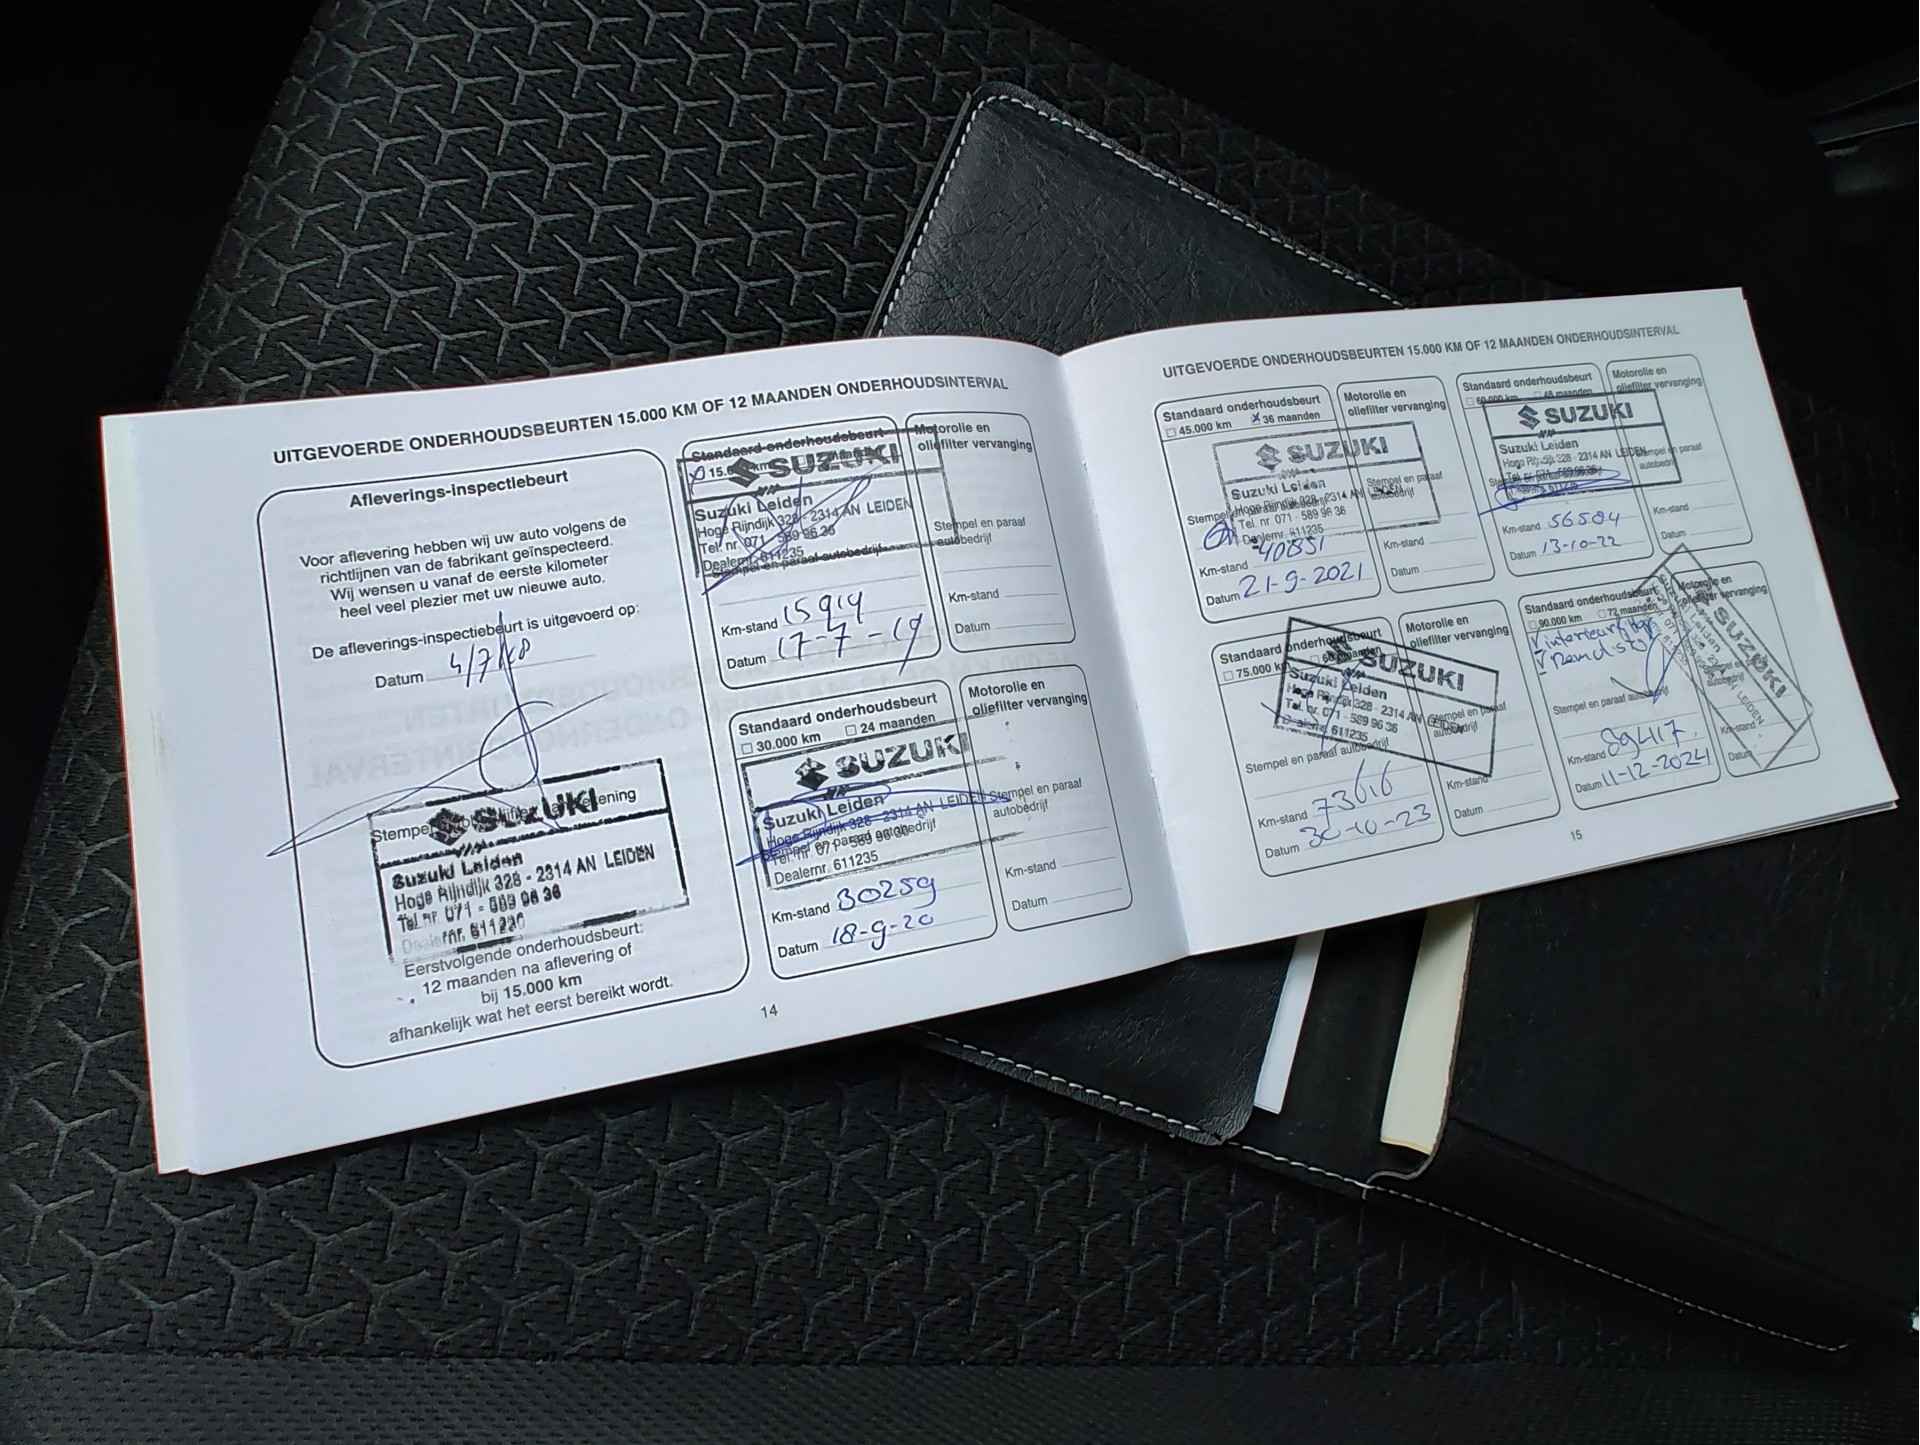 UITGEVOERDE ONDERHOUDSBEURTEN 15.000 KM OF 12 MAANDEN ONDERHOUDSINTERVAL
Afleverings-inspectiebeurt
Voor aflevering hebben wij uw auto volgens de
richtlijnen van de fabrikant geïnspecteerd.
Wij wensen u vanaf de eerste kilometer
heel veel plezier met uw nieuwe auto.
De afleverings-inspectiebeurt is uitgevoerd op:
Datum 4/7/18
SUZUKI
Suzuki Leiden
Hoge Rijndijk 328 - 2314 AN LEIDEN
Tel. nr. 071 - 589 96 36
Eerstvolgende onderhoudsbeurt:
12 maanden na aflevering of
bij 15.000 km
afhankelijk wat het eerst bereikt wordt.
Standaard onderhoudsbeurt
SUZUKI
Suzuki Leiden
Hoge Rijndijk 328 - 2314 AN LEIDEN
Tel. nr. 071 - 589 96 36
Dealernr. 611235
Stempel en paraaf autobedrijf
Km-stand 15914
Datum 17-7-19
Motorolie en
oliefilter vervanging
Stempel en paraaf
autobedrijf
Km-stand
Datum
Standaard onderhoudsbeurt
30.000 km 24 maanden
SUZUKI
Suzuki Leiden
Hoge Rijndijk 328 - 2314 AN LEIDEN
Stempel en paraaf autobedrijf
Tel. nr. 071 - 589 96 36
Dealernr. 611235
Km-stand 30259
Datum 18-9-20
Motorolie en
oliefilter vervanging
Stempel en paraaf
autobedrijf
Km-stand
Datum
14
UITGEVOERDE ONDERHOUDSBEURTEN 15.000 KM OF 12 MAANDEN ONDERHOUDSINTERVAL
Standaard onderhoudsbeurt
45.000 km x 36 maanden
SUZUKI
Suzuki Leiden
Hoge Rijndijk 328 - 2314 AN
Tel. nr. 071 - 589 96 36
Dealernr. 611235
Km-stand 40851
Datum 21-9-2021
Motorolie en
oliefilter vervanging
Stempel en paraaf
autobedrijf
Km-stand
Datum
Standaard onderhoudsbeurt
60.000 km 48 maanden
SUZUKI
Suzuki Leiden
Hoge Rijndijk 328 - 2314 AN LEIDEN
Tel. nr. 071 - 589 96 36
Km-stand 56584
Datum 13-10-22
Motorolie en
oliefilter vervanging
Stempel en paraaf
autobedrijf
Km-stand
Datum
Standaard onderhoudsbeurt
75.000 km maanden
SUZUKI
Suzuki Leiden
Hoge Rijndijk 328 - 2314 AN LEIDEN
Tel. nr. 071 - 589 96 36
Dealernr. 611235
Stempel en paraaf autobedrijf
Km-stand 73616
Datum 30-10-23
Motorolie en
oliefilter vervanging
Stempel en paraaf
autobedrijf
Km-stand
Datum
Standaard onderhoudsbeurt
90.000 km 72 maanden
Stempel en paraaf autobedrijf
Km-stand 89417
Datum 11-12-2024
Motorolie en
oliefilter vervanging
SUZUKI
Stempel en paraaf
autobedrijf
Km-stand
Datum
15